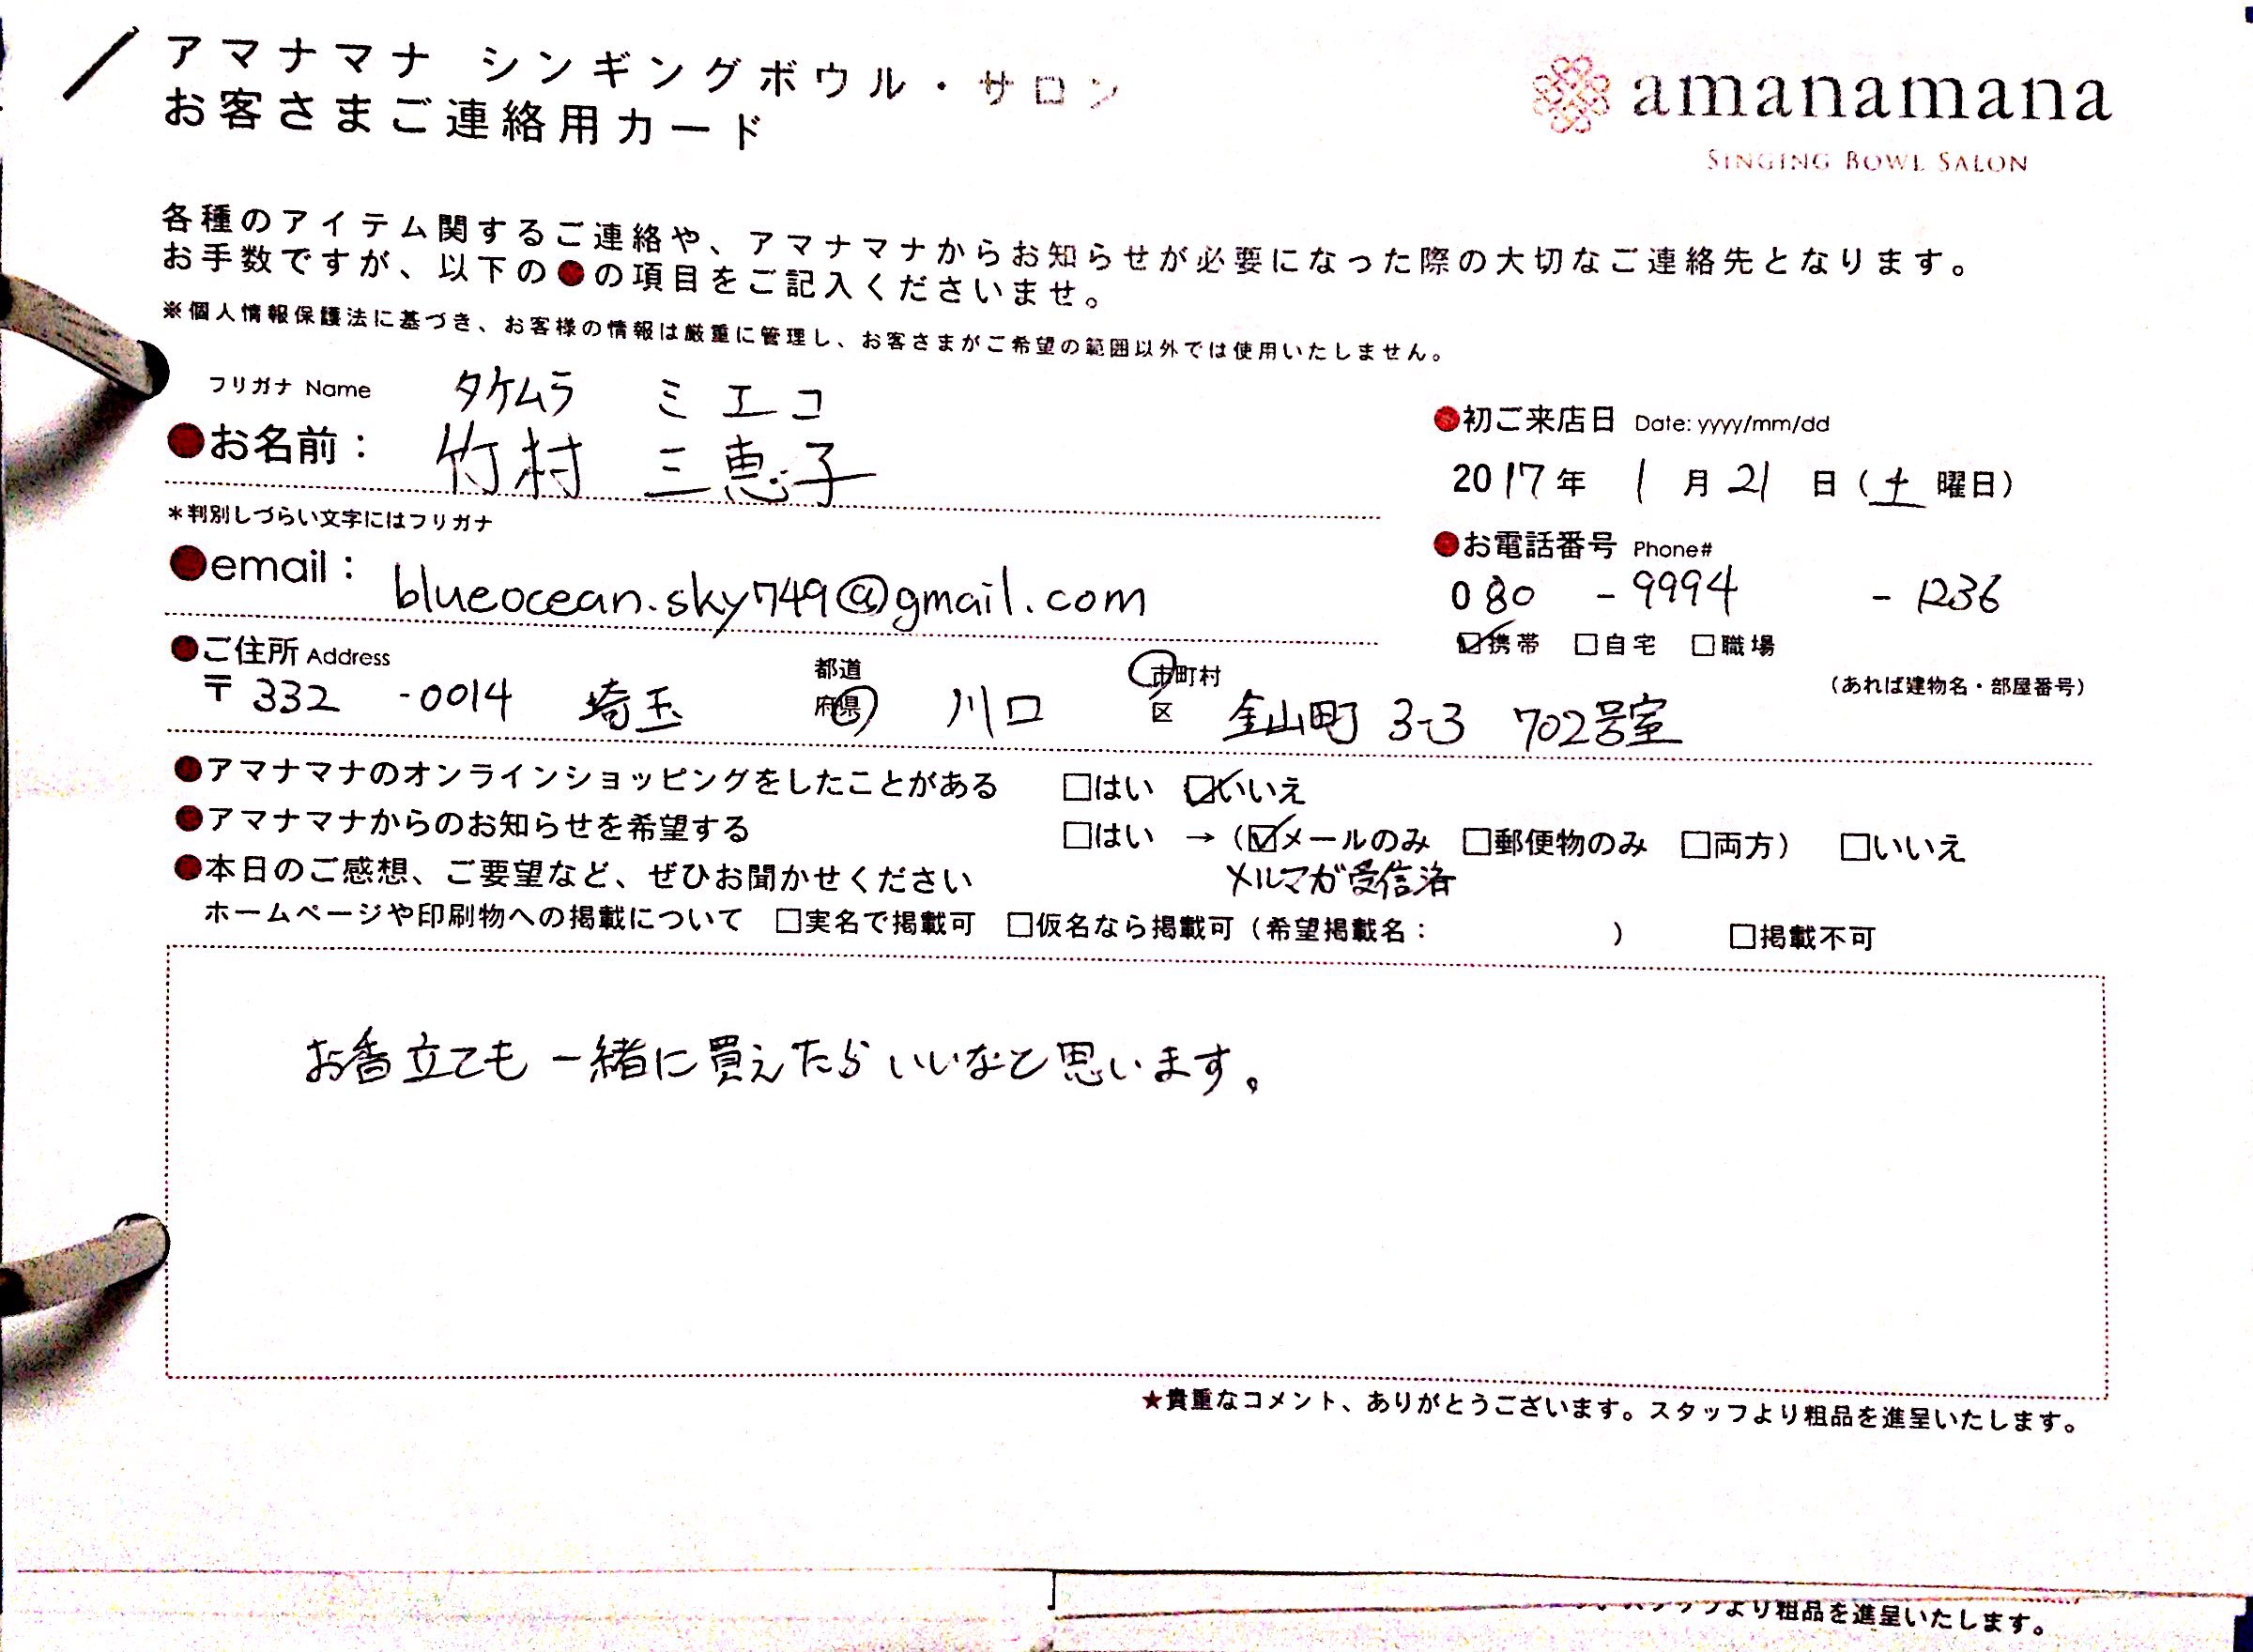 アマナマナ シンギングボウル・サロン
お客さまご連絡用カード
amanamana
SINGING BOWL SALON
各種のアイテム関するご連絡や、アマナマナからお知らせが必要になった際の大切なご連絡先となります。
お手数ですが、以下の●の項目をご記入くださいませ。
※個人情報保護法に基づき、お客様の情報は厳重に管理し、お客さまがご希望の範囲以外では使用いたしません。
フリガナ Name タケムラ ミエコ
●お名前： 竹村 三恵子
*判別しづらい文字にはフリガナ
●初ご来店日 Date: yyyy/mm/dd
2017年 1月21日（土曜日）
●email： blueocean.sky749@gmail.com
●お電話番号 Phone#
080 - 9994 - 1236
☑携帯 □自宅 □職場
●ご住所 Address 都道府県 市町村区 （あれば建物名・部屋番号）
〒332-0014 埼玉 川口 金山町 3-3 702号室
●アマナマナのオンラインショッピングをしたことがある □はい ☑いいえ
●アマナマナからのお知らせを希望する □はい →（☑メールのみ □郵便物のみ □両方） □いいえ
メルマガ受信済
●本日のご感想、ご要望など、ぜひお聞かせください
ホームページや印刷物への掲載について □実名で掲載可 □仮名なら掲載可（希望掲載名： ） □掲載不可
お香立ても一緒に買えたらいいなと思います。
★貴重なコメント、ありがとうございます。スタッフより粗品を進呈いたします。
スタッフより粗品を進呈いたします。